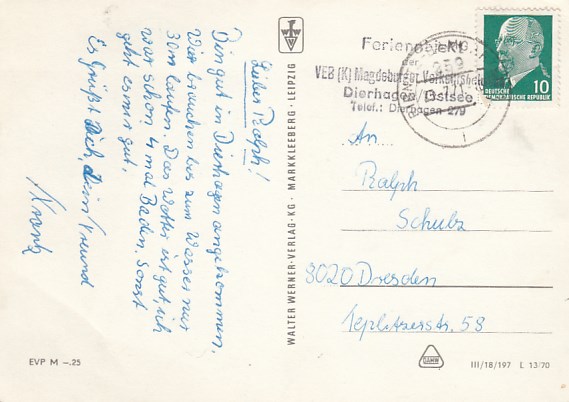 Lieber Ralph!
Bin gut in Dierhagen angekommen.
Wir brauchen bis zum Wasser nur
30m laufen. Das Wetter ist gut, ich
war schon 4 mal Baden. Sonst
geht es mir gut.
Es Grüßt Dich, Dein Freund
WALTER WERNER-VERLAG·KG · MARKKLEEBERG · LEIPZIG
Ferienobjekt
der
VEB (K) Magdeburger Verkehrsbetriebe
Dierhagen Ostsee
Telef.: Dierhagen 279
DEUTSCHE
DEMOKRATISCHE REPUBLIK
10
An
Ralph
Schulz
8020 Dresden
Teplitzerstr. 58
EVP M –.25
III/18/197 L 13/70